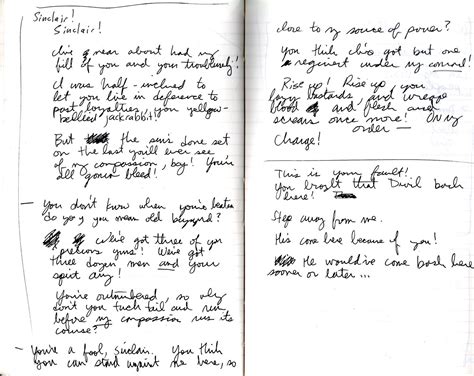 Sinclair!
Sinclair!
I've near about had my
fill of you and your troublemy!
I was half-inclined to
let you live in deference to
past loyalties, you yellow-
bellied jackrabbit!
But the sun's done set
on the last you'll ever see
of my compassion, boy! You're
all gonna bleed!
You don't know when you're beaten
do ya, you mean old
We've got three of yer
precious guns! We've got
three dozen men and your
spirit army!
You're outnumbered, so why
don't you tuck tail and run
before my compassion runs its
course?
You're a fool, Sinclair. You think
you can stand against me here, so
close to my source of power?
You think I've got but one
regiment under my command!
Rise up! Rise up, you
bastards and
blood and flesh and
scream once more! On my
order —
Charge!
This is your fault!
You brought that Devil back
here!
Step away from me.
He's come here because of you!
He would've come back here
sooner or later...